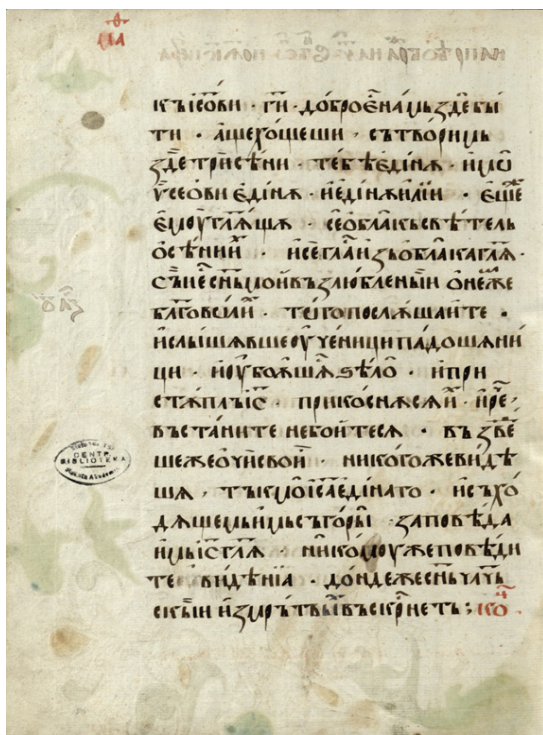 къ іс҃ови · ги҃ · добро є҆ нам ь зде бы
ти · аще хощеши · сътворимь
зде три сѣни · тебѣ єдіня · и мѡ
ѵ҆сеови єдіня · и єдіня илїи · єще
ємоу гл҃ящя · се облакь свѣтель
осѣни ѝ · и се гл҃а изь облака гл҃я ·
съ и є сн҃ь мои възлюбленыи о немже
бл҃говолиⷯ · того послꙋшаите ·
и слышявше оученици падошя ни
ци · и оубояшяⷭ ѕѣло · и при
стꙋпль іс҃ · прикоснꙋся иⷯ · и реⷱ
въстаните не боитеся · възвеⷣ
шеже очи свои · никогоже видѣ
шя · тькмо іс҃а єдінаго · и съхо
дящемь имь съ горы · заповѣда
имь іс҃ гл҃я · никомоуже повѣди
те видѣнїа · дондеже сн҃ь чл҃чь
скыи из мрьтвыⷯ въскрⷭнеть ; коⷰ
CENTR.
BIBLIOTEKA